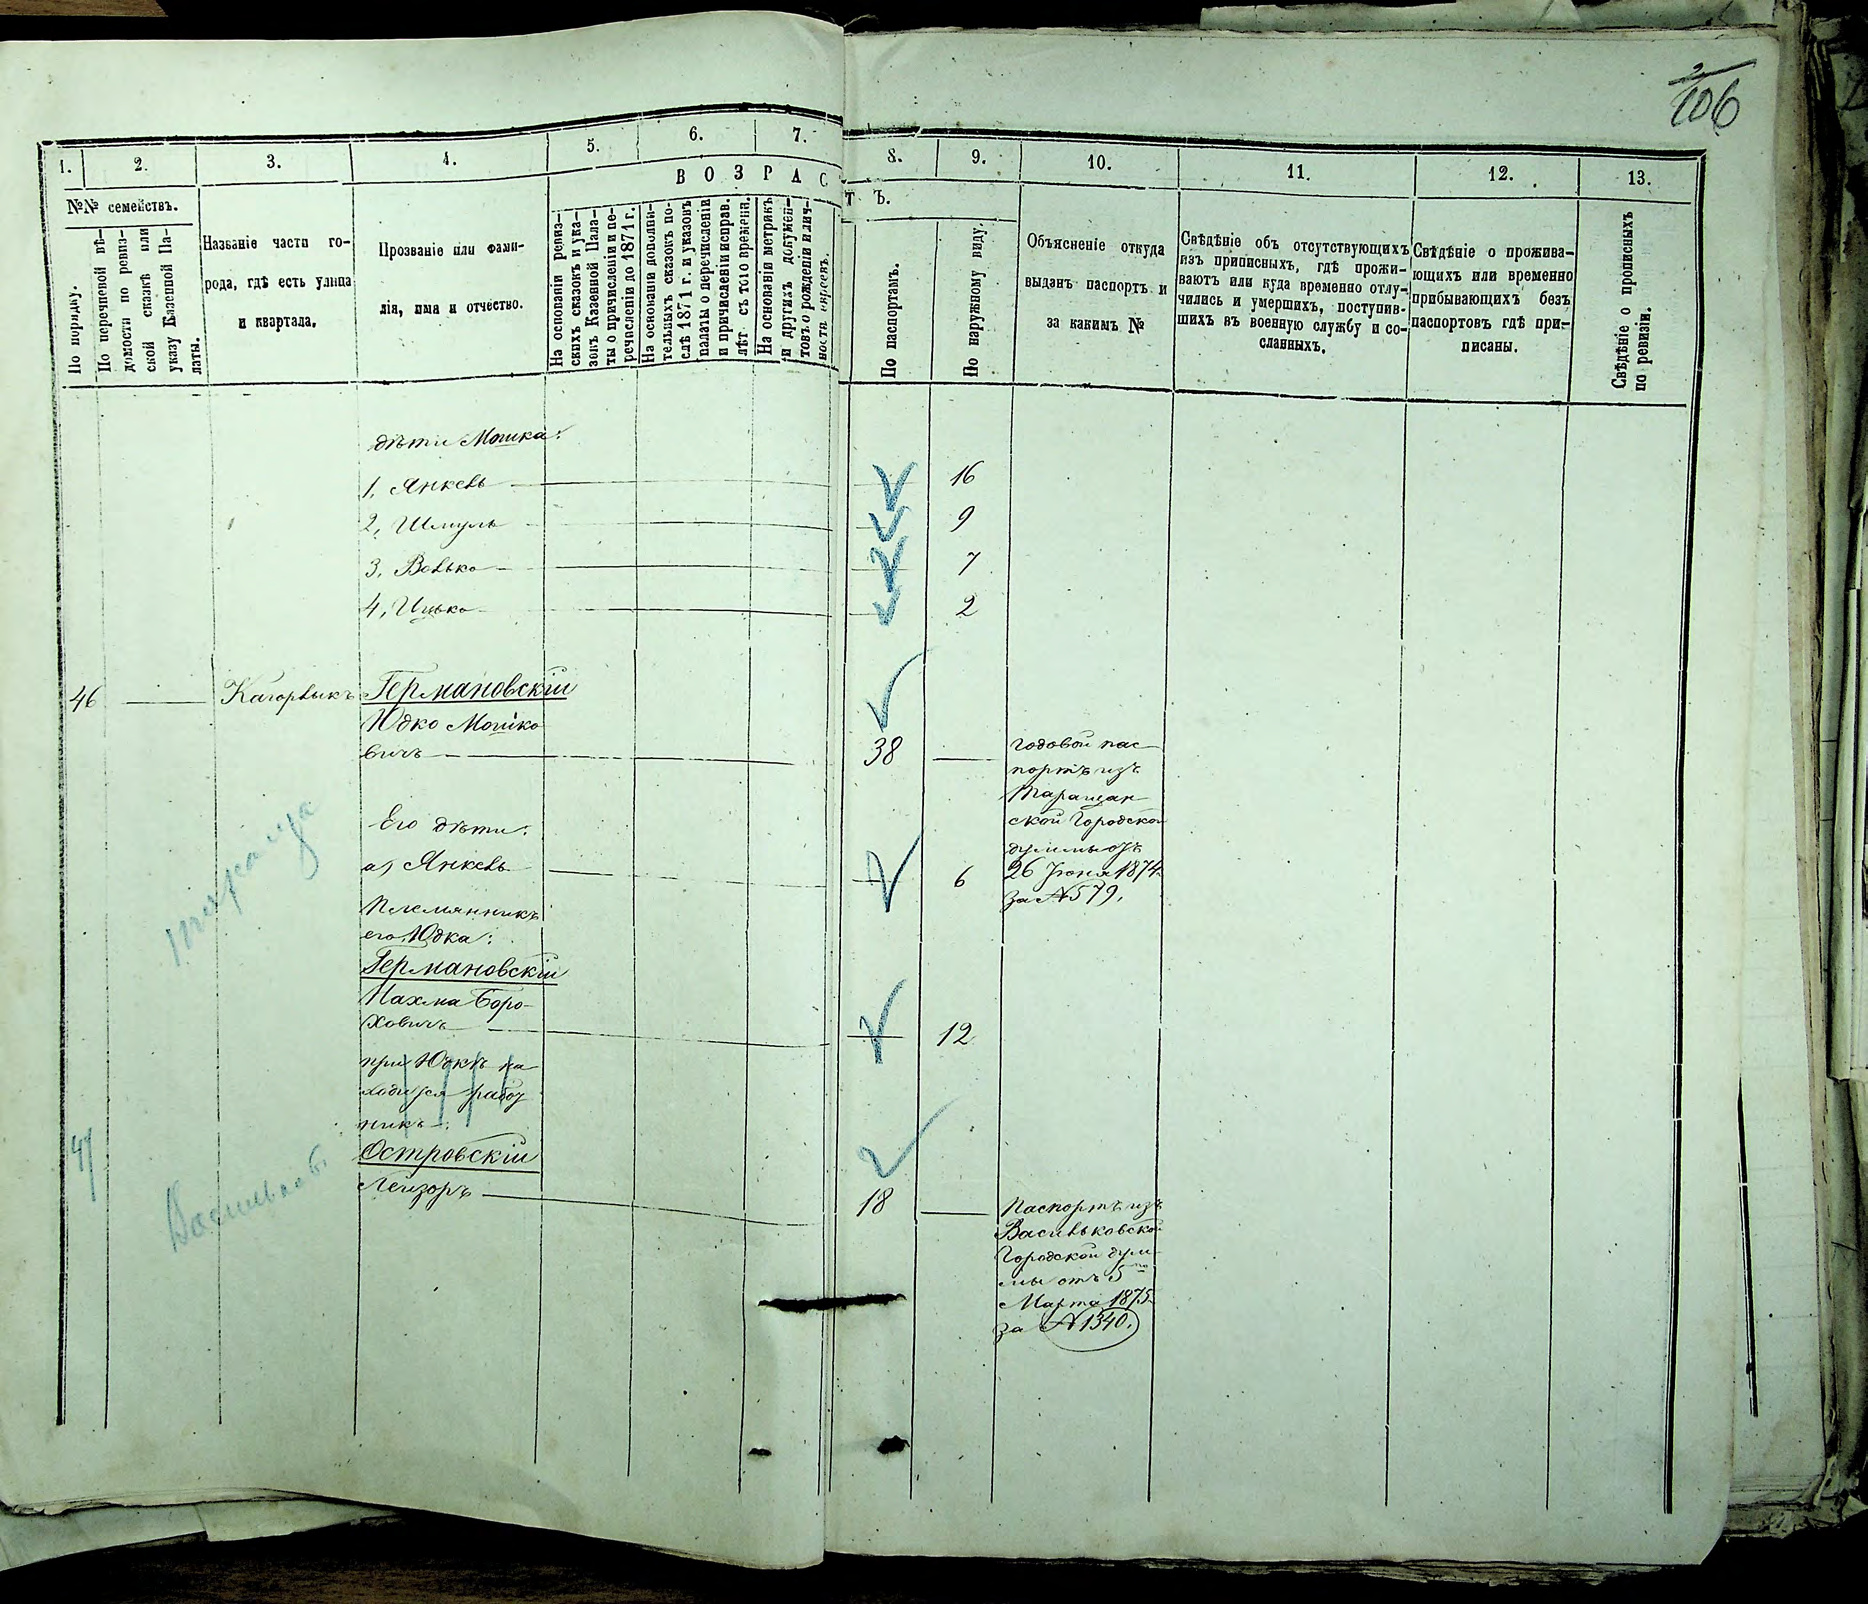 2/106
1. 2. 3. 4. 5. 6. 7. 8. 9. 10. 11. 12. 13.
ВОЗРАСТЪ.
№№ семействъ.
По порядку.
По перечневой вѣ-
домости по ревиз-
ской сказкѣ или
указу Казенной Па-
латы.
Названіе части го-
рода, гдѣ есть улица
и квартала.
Прозваніе или фами-
лія, имя и отчество.
На основаніи ревиз-
скихъ сказокъ и ука-
зовъ Казенной Пала-
ты о причисленіи и пе-
речисленіи до 1871 г.
На основаніи дополни-
тельныхъ сказокъ по-
слѣ 1871 г. и указовъ
палаты о перечисленіи
и причисленіи исправ.
лѣт. съ того времени.
На основаніи метрикъ
и другихъ докумен-
товъ о рожденіи и лич-
ности евреевъ.
По паспортамъ.
По наружному виду.
Объясненіе откуда
выданъ паспортъ и
за какимъ №
Свѣдѣніе объ отсутствующихъ
изъ приписныхъ, гдѣ прожи-
ваютъ или куда временно отлу-
чились и умершихъ, поступив-
шихъ въ военную службу и со-
сланныхъ.
Свѣдѣніе о прожива-
ющихъ или временно
прибывающихъ безъ
паспортовъ гдѣ при-
писаны.
Свѣдѣніе о прописныхъ
по ревизіи.
дѣти Мошка:
1, Янкель 16
2, Шмуль 9
3, Волько 7
4, Ицько 2
46 Кагорлыкъ Германовскій
Юдко Мошко
вичъ 38
годовой пас
портъ изъ
Таращан
ской Городской
думмы отъ
26 Іюня 1874
за №579.
Его дѣти:
а, Янкель 6
тараща
Племянникъ
его Юдка:
Германовскій
Нахма Боро-
ховичъ 12
при Юдкѣ на
ходится работ
никъ:
47 Островскій
Лейзоръ 18
Васильковъ
Паспортъ изъ
Васильковской
Городской дум
мы отъ 5го
Марта 1875
за №1340.